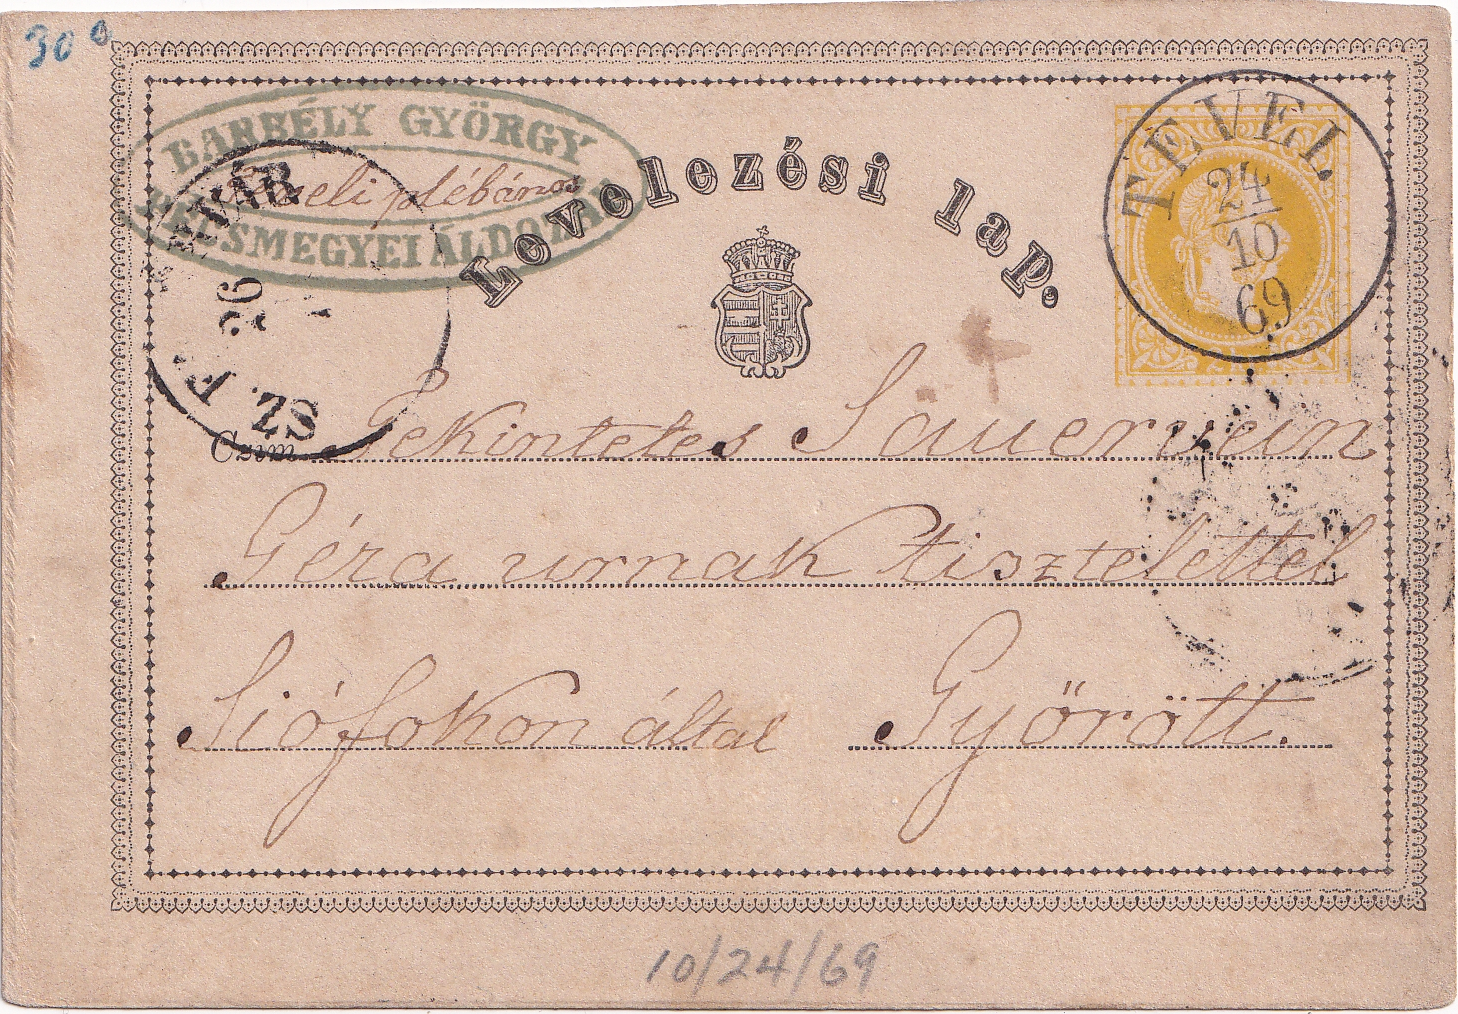 30
BARBÉLY GYÖRGY
plébános
PÉCSMEGYEI ÁLDOZÁR
Levelezési lap.
TEVEL
24
10
69
26
SZ. F VÁR
Czim Tekintetes Sauerwein
Géza urnak tisztelettel
Siófokon által Győrött.
10/24/69